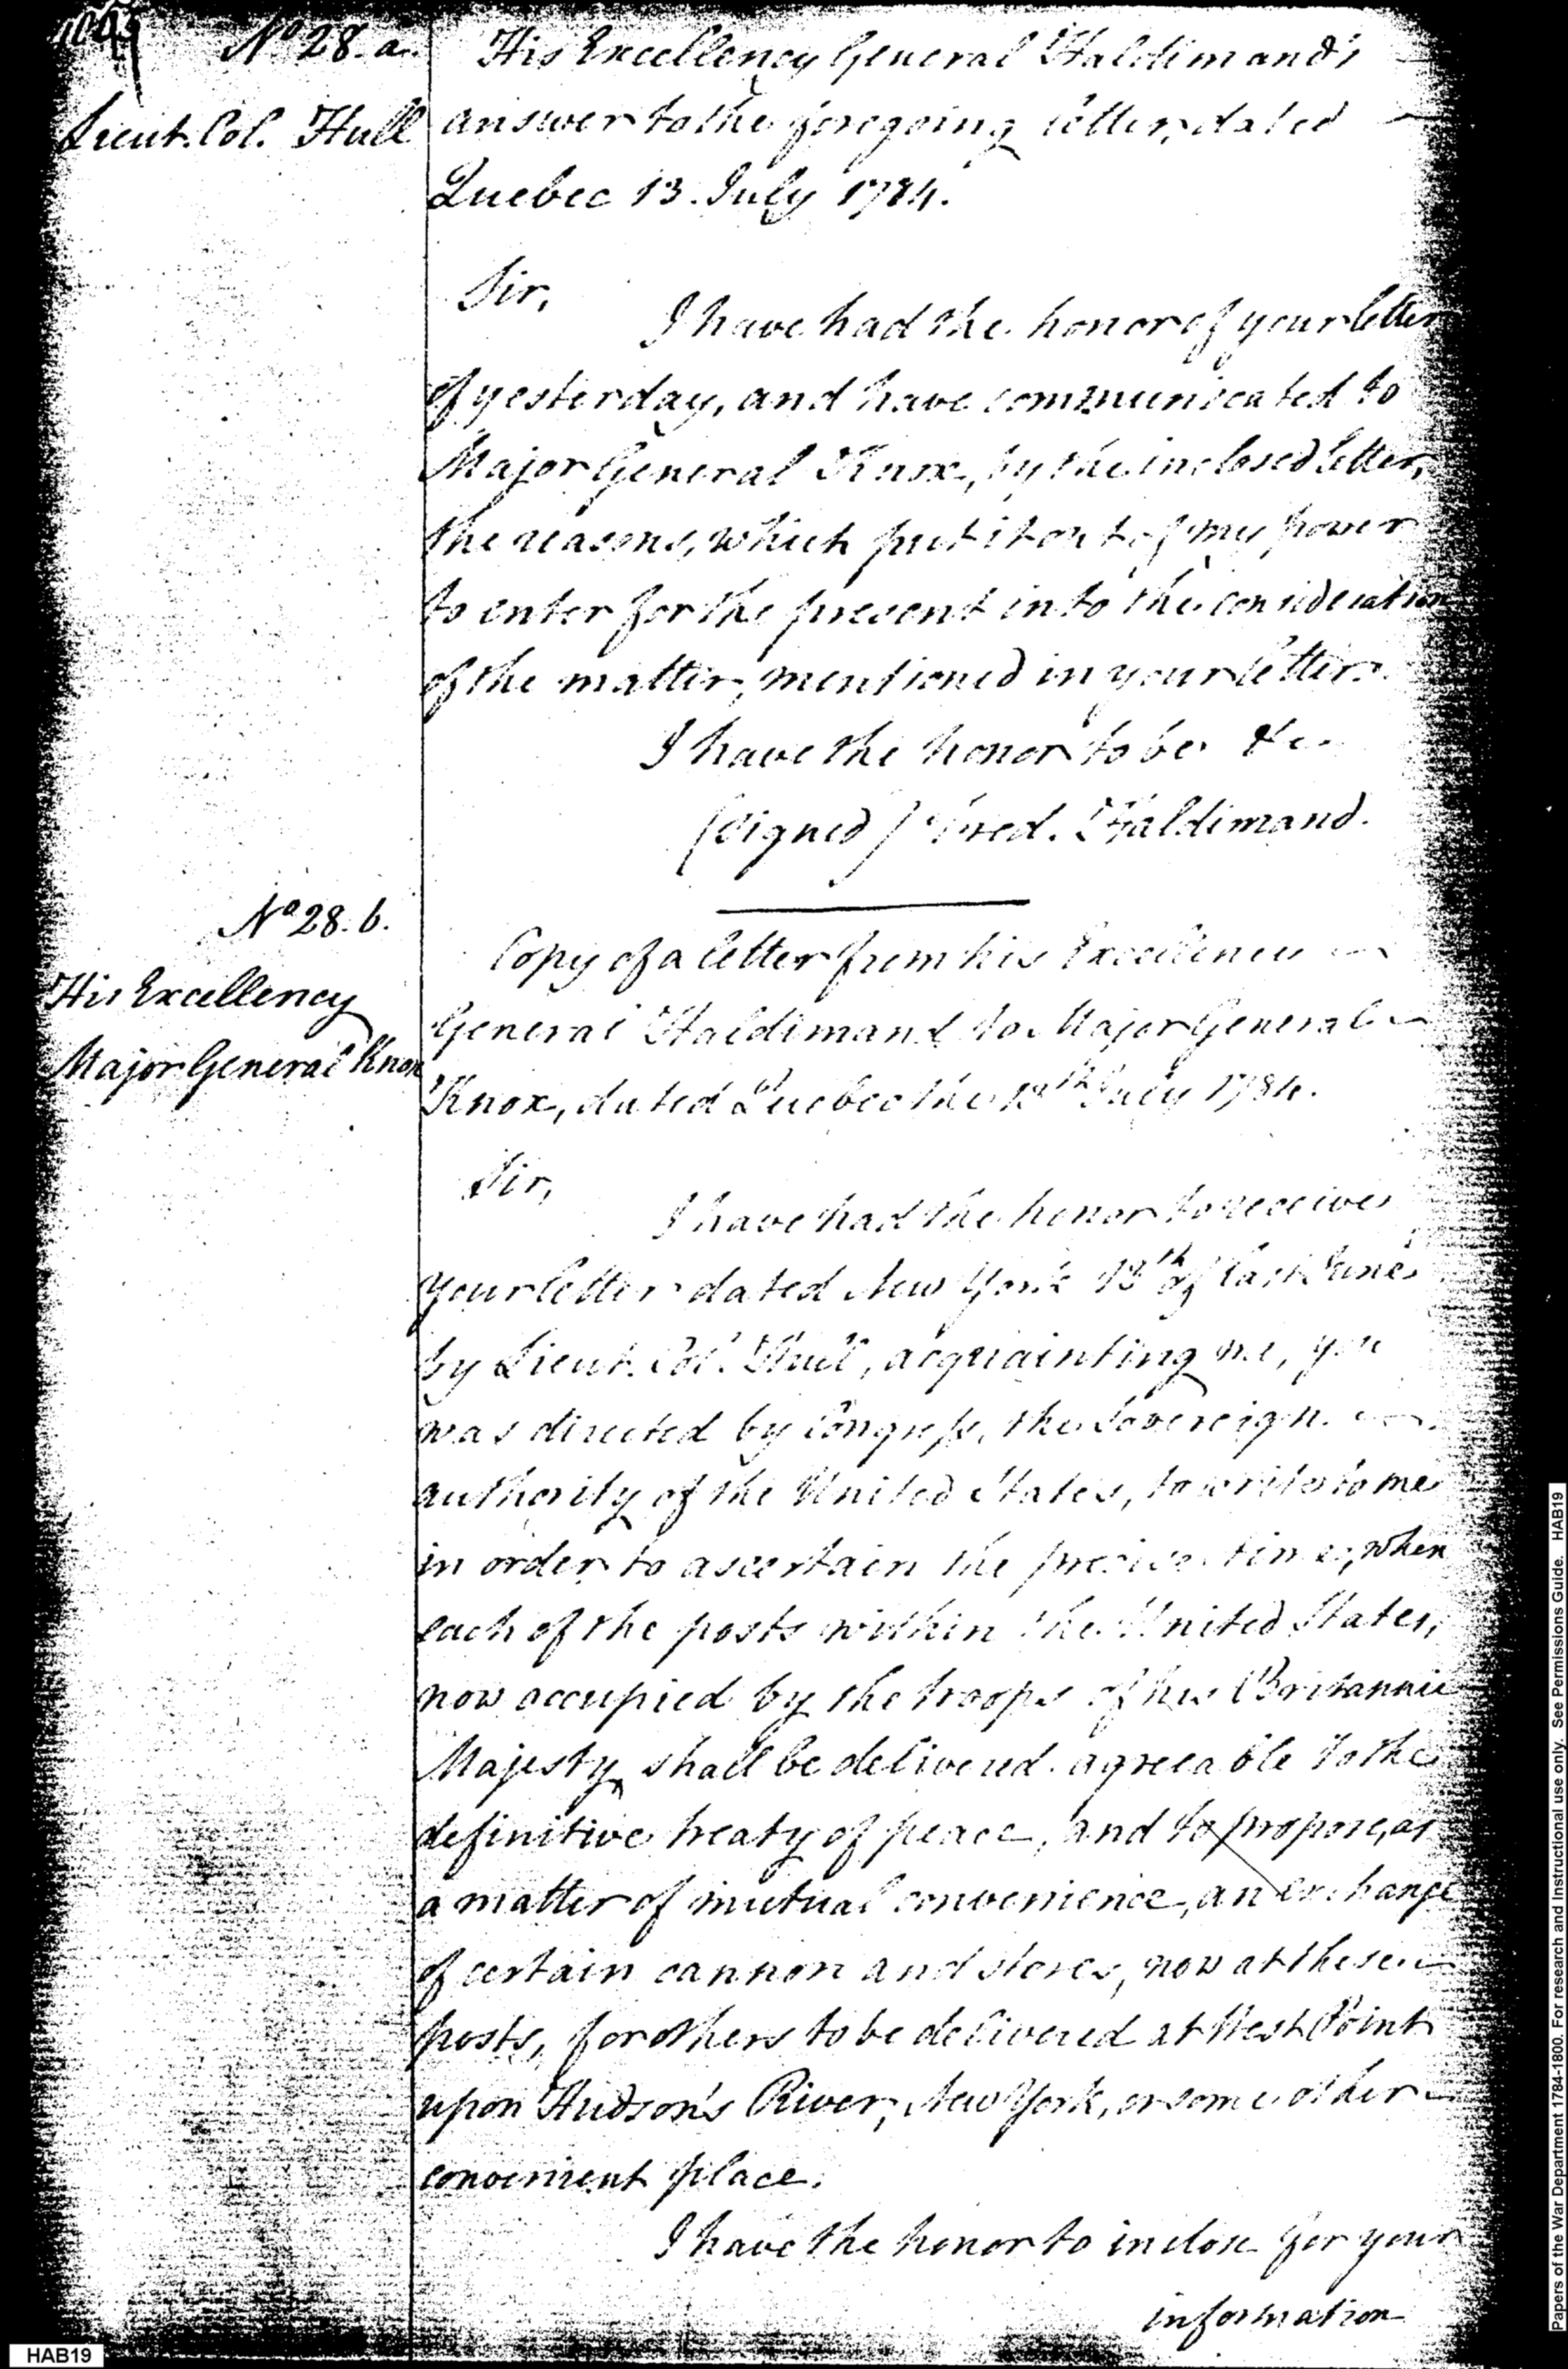 No 28. a.
Lieut. Col. Hull
His Excellency General Haldimand's
answer to the foregoing letter, dated
Quebec 13. July 1784.
Sir,
I have had the honor of your letter
of yesterday, and have communicated to
Major General Knox, by the inclosed letter,
the reasons, which put it out of my power
to enter for the present into the consideration
of the matter, mentioned in your letter.
I have the honor to be &c.
(signed) Fred. Haldimand.
No 28. b.
His Excellency
Major General Knox
Copy of a letter from his Excellency
General Haldimand to Major General
Knox, dated Quebec the 13th July 1784.
Sir,
I have had the honor to receive
your letter dated New York 13th of last June
by Lieut. Col. Hull, acquainting me, you
was directed by Congress, the Sovereign
authority of the United States, to write to me
in order to ascertain the precise time, when
each of the posts within the United States,
now occupied by the troops of his Britannic
Majesty, shall be delivered agreeable to the
definitive treaty of peace, and to propose, as
a matter of mutual convenience, an exchange
of certain cannon and stores, now at these
posts, for others to be delivered at West Point
upon Hudson's River, New York, or some other
convenient place.
I have the honor to inclose for your
information
HAB19
Papers of the War Department 1784-1800. For research and Instructional use only. See Permissions Guide. HAB19